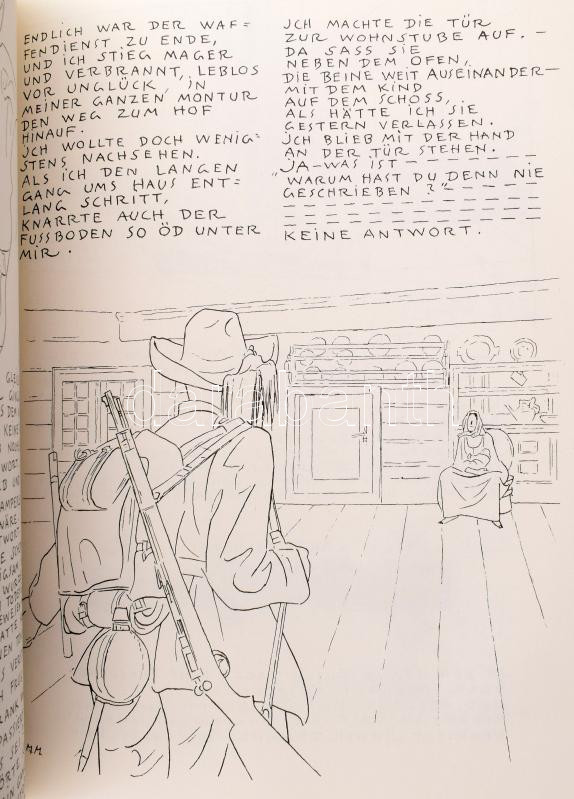 ENDLICH WAR DER WAF=
FENDIENST ZU ENDE,
UND ICH STIEG MAGER
UND VERBRANNT, LEBLOS
VOR UNGLÜCK, IN
MEINER GANZEN MONTUR
DEN WEG ZUM HOF
HINAUF.
ICH WOLLTE DOCH WENIG=
STENS NACHSEHEN.
ALS ICH DEN LANGEN
GANG UMS HAUS ENT=
LANG SCHRITT,
KNARRTE AUCH DER
FUSSBODEN SO ÖD UNTER
MIR.
ICH MACHTE DIE TÜR
ZUR WOHNSTUBE AUF. —
DA SASS SIE
NEBEN DEM OFEN,
DIE BEINE WEIT AUSEINANDER—
MIT DEM KIND
AUF DEM SCHOSS,
ALS HÄTTE ICH SIE
GESTERN VERLASSEN.
ICH BLIEB MIT DER HAND
AN DER TÜR STEHEN.
JA—WAS IST — — — — — — —
"WARUM HAST DU DENN NIE
GESCHRIEBEN ?"— — — — —
KEINE ANTWORT.
darabanth